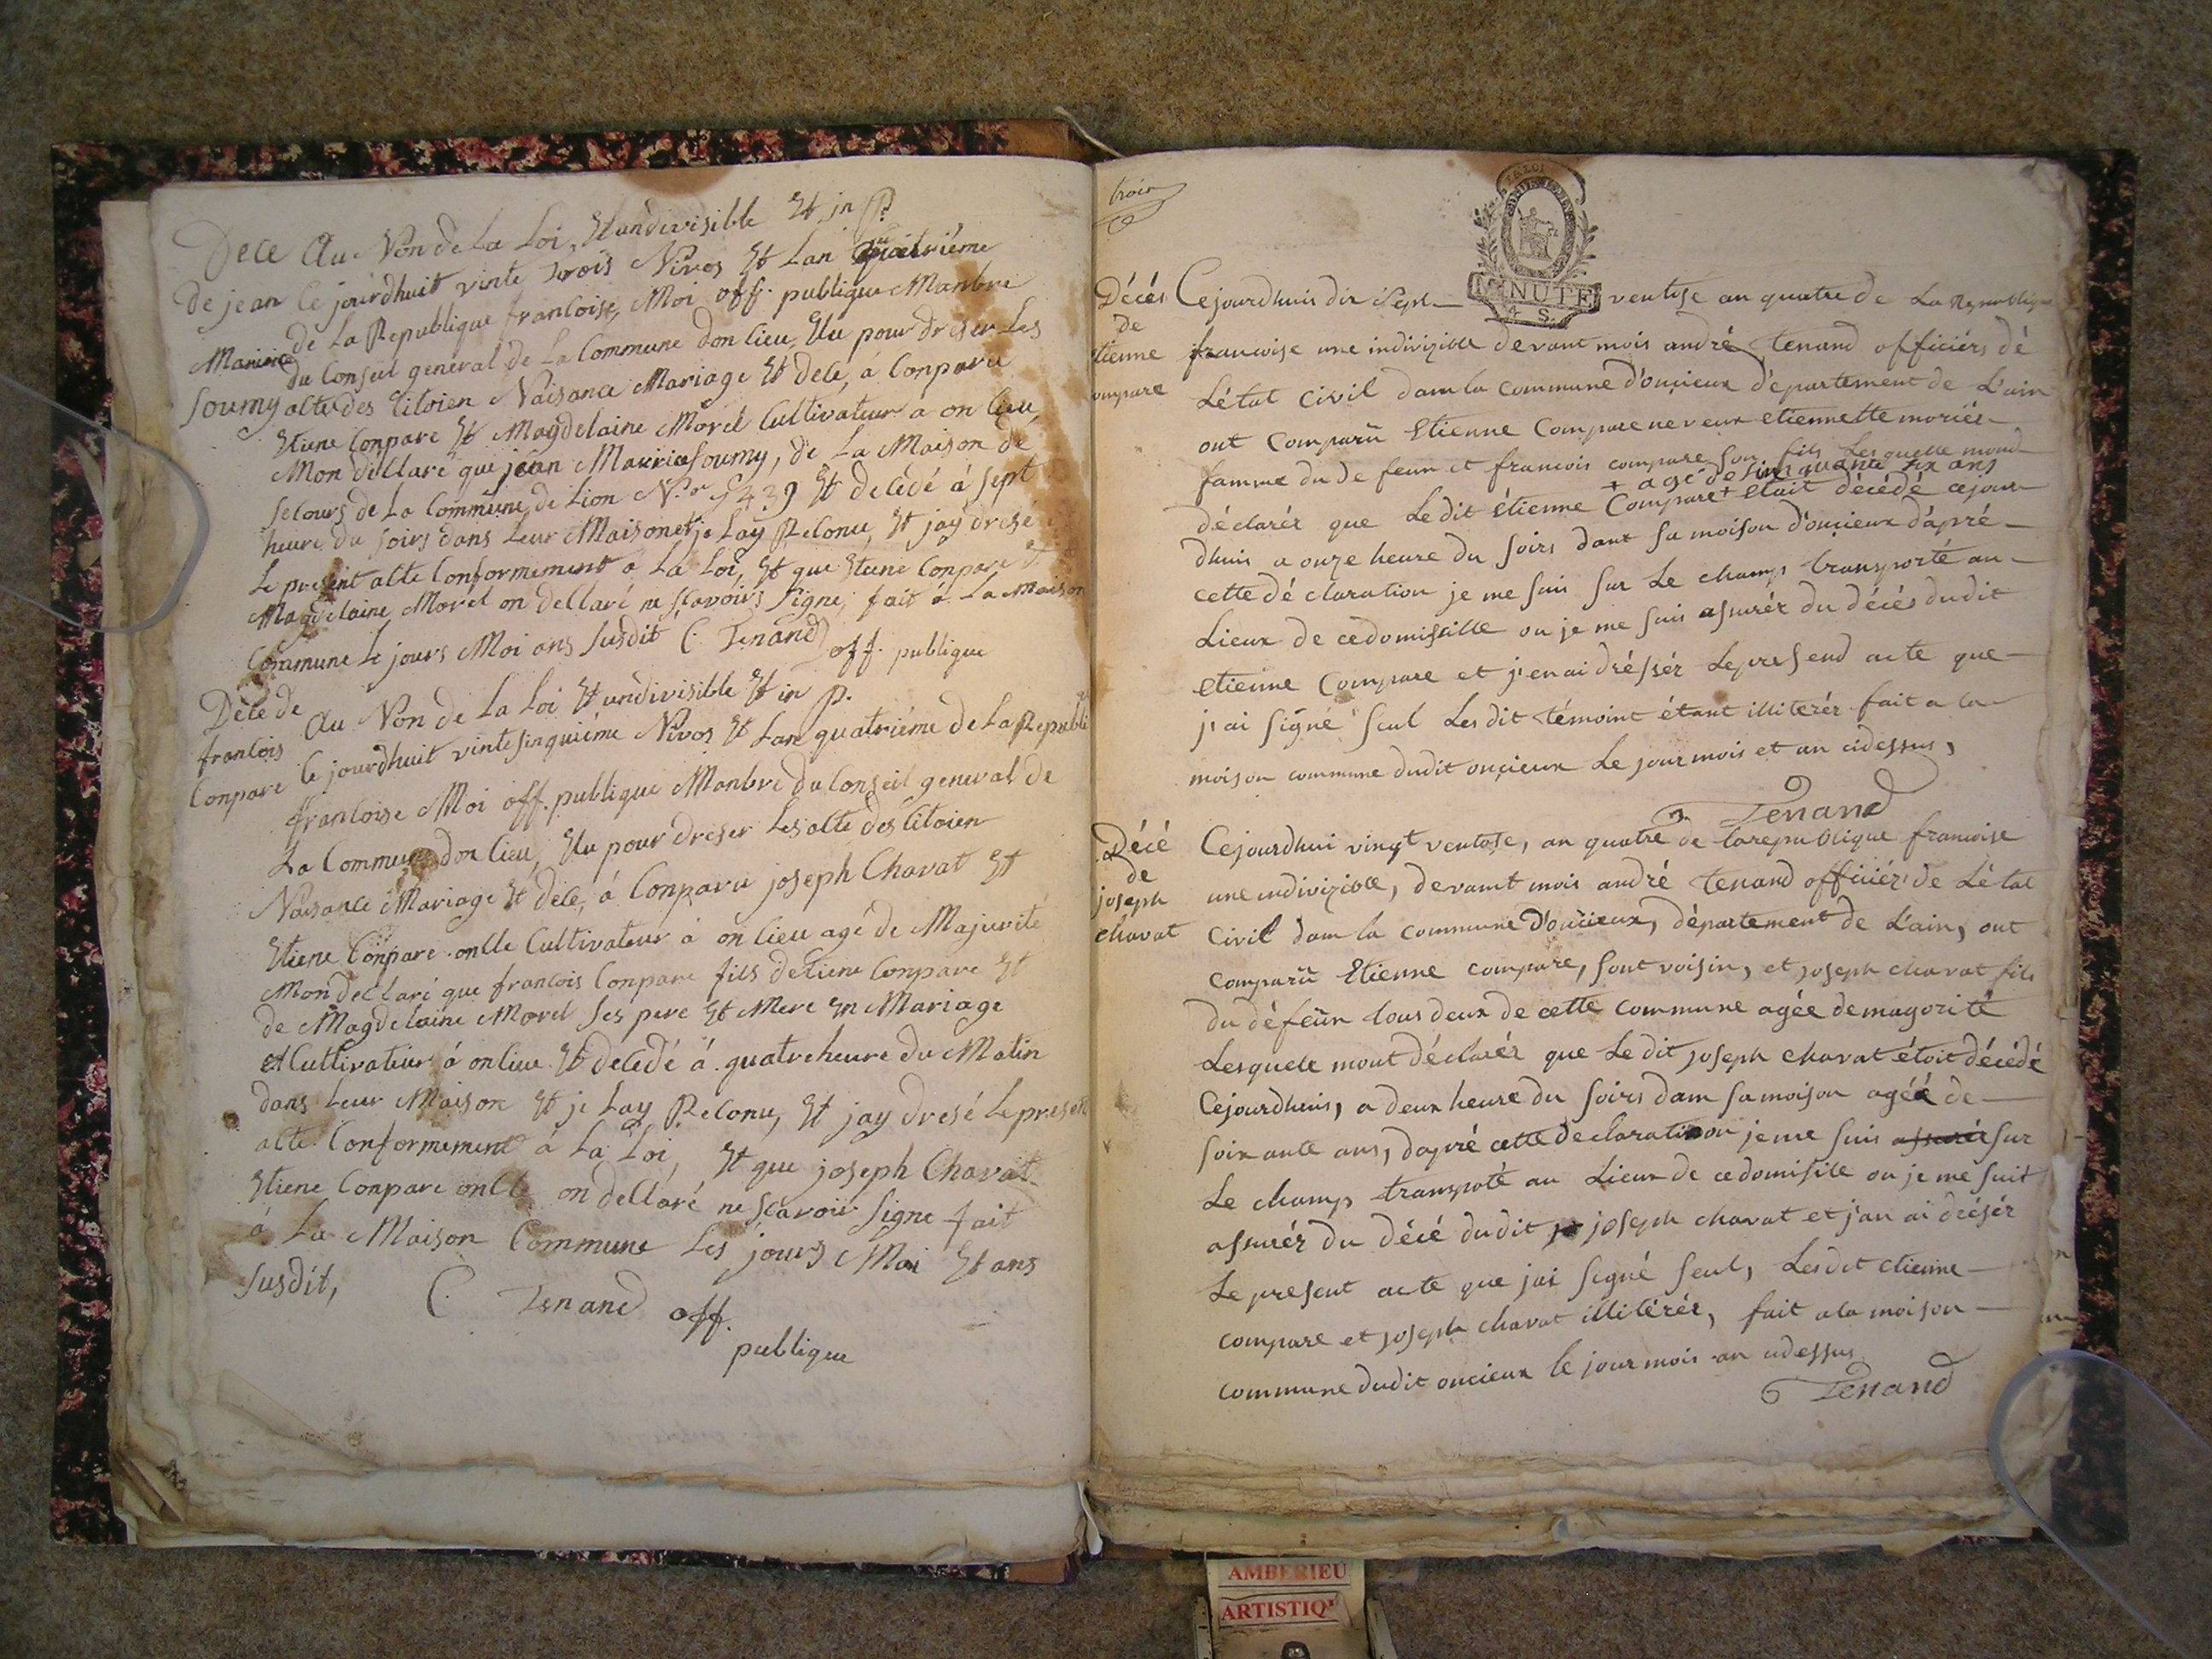 Dece Au Non de La Loi, Et undivisible Et in P.
De jean Ce jourdhuit vinte trois Nivos Et Lan quatriéme
de La Republique francoise, Moi off. publique Manbre
Maurice du Conseil general de La Commune don lieu, Elu pour dreser Les
Soumy alte des Citoien Naisance Mariage Et dele, á Conparu
Etiene Conpare Et Magdelaine Morel Cultivateur a on lieu,
Mon dellaré que jean Maurice Soumy, de La Maison de
Secours de La Commune de Lion N.ro 5439 Et deledé á Sept
heure du Soirs dans Leur Maison et je Lay Reconu, Et jay dresé
Le present alte Conformement a La Loi, Et que Etiene Conpare Et
Magdelaine Morel on dellaré ne scavoirs Signe, fait á La Maison
Commune Le jours Moi ans Susdit C. Tenand off. publique
Déle de Au Non de La Loi Et undivisible Et in P.
francois Ce jourdhuit vinte sinquiéme Nivos Et Lan quatriéme de La Republi
Conpare francoise Moi off. publique Manbre du Conseil general de
La Commune don lieu, Elu pour dreser Les alte des Citoien
Naisance Mariage Et dele, á Conparu joseph Chavat Et
Etiene Conpare oncle Cultivateur á on lieu agé de Majurité
Mon declaré que francois Conpare fils detiene Conpare Et
de Magdelaine Morel Ses pere Et Mere En Mariage
et Cultivateur á on lieu Et deledé á quatre heure du Matin
dans Leur Maison Et je Lay Reconu, Et jay dresé Le present
alte Conformement á La Loi, Et que joseph Chavat
Etiene Conpare oncle on dellaré ne scavoir Signe fait
á La Maison Commune Les jours Moi Et ans
Susdit, C. Tenand off.
publique
trois
LA LOI
MINUTE
4 S.
Décés Cejourdhuis dix Sept ventose an quatre de La Republique
de francoise une indivizible devant mois andré Tenand officiérs dé
etienne Létat Civil dam la commune d'oncieux d'epartement de L'ain
compare ont Comparü Etienne Compare neveux etiennette moriés
famme du de feun et francois compare son fils Lesquelle mond
+ agé de sinquante six ans
déclarér que Le dit Etienne Compare + etait décédé cejour
dhuis a onze heure du soirs dant sa moison d'oncieux d'apré
cette déclaration je me suis sur Le champs transporté au
Lieux de cedomissille ou je me suis assurér du décés dudit
etienne Compare et j'en ai dréssér Le presend acte que
j'ai signé seul Les dit témoint étant illiterér fait a la
moison commune dudit oncieux Le jour mois et an cidessus,
Tenand
Décé Cejourdhui vingt ventose, an quatre de larepublique francoise
de une indivizible, devamt mois andré tenand officiér de Létat
joseph
chavat Civil dam la commune D'oncieux, département de L'ain, ont
comparü Etienne compare, sont voisin, et joseph chavat fils
du défeün tous deux de cette commune agée demagorité
Lesquele mont déclarér que Le dit joseph chavat étoit décédé
Cejourdhuis, a deux heure du soirs dam sa moison agéé de
soixante ans, dapré cette declaration je me suis assurér sur
Le champs transpoté au Lieux de cedomisile ou je me suit
assurér du décé dudit jo joseph chavat et j'an ai drésér
Le present acte que jai signé seul, Lesdit etienne
compare et joseph chavat illitérér, fait ala moison
commune dudit oncieux le jour mois an cidessus
Tenand
AMBERIEU
ARTISTIQ'